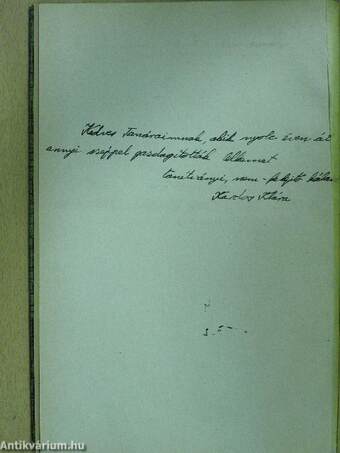 Kedves Tanáraimnak, akik nyolc éven át
annyi széppel gazdagították lelkemet
tanítványi, nem-felejtő hálával
Kardos Klára
Antikvárium.hu